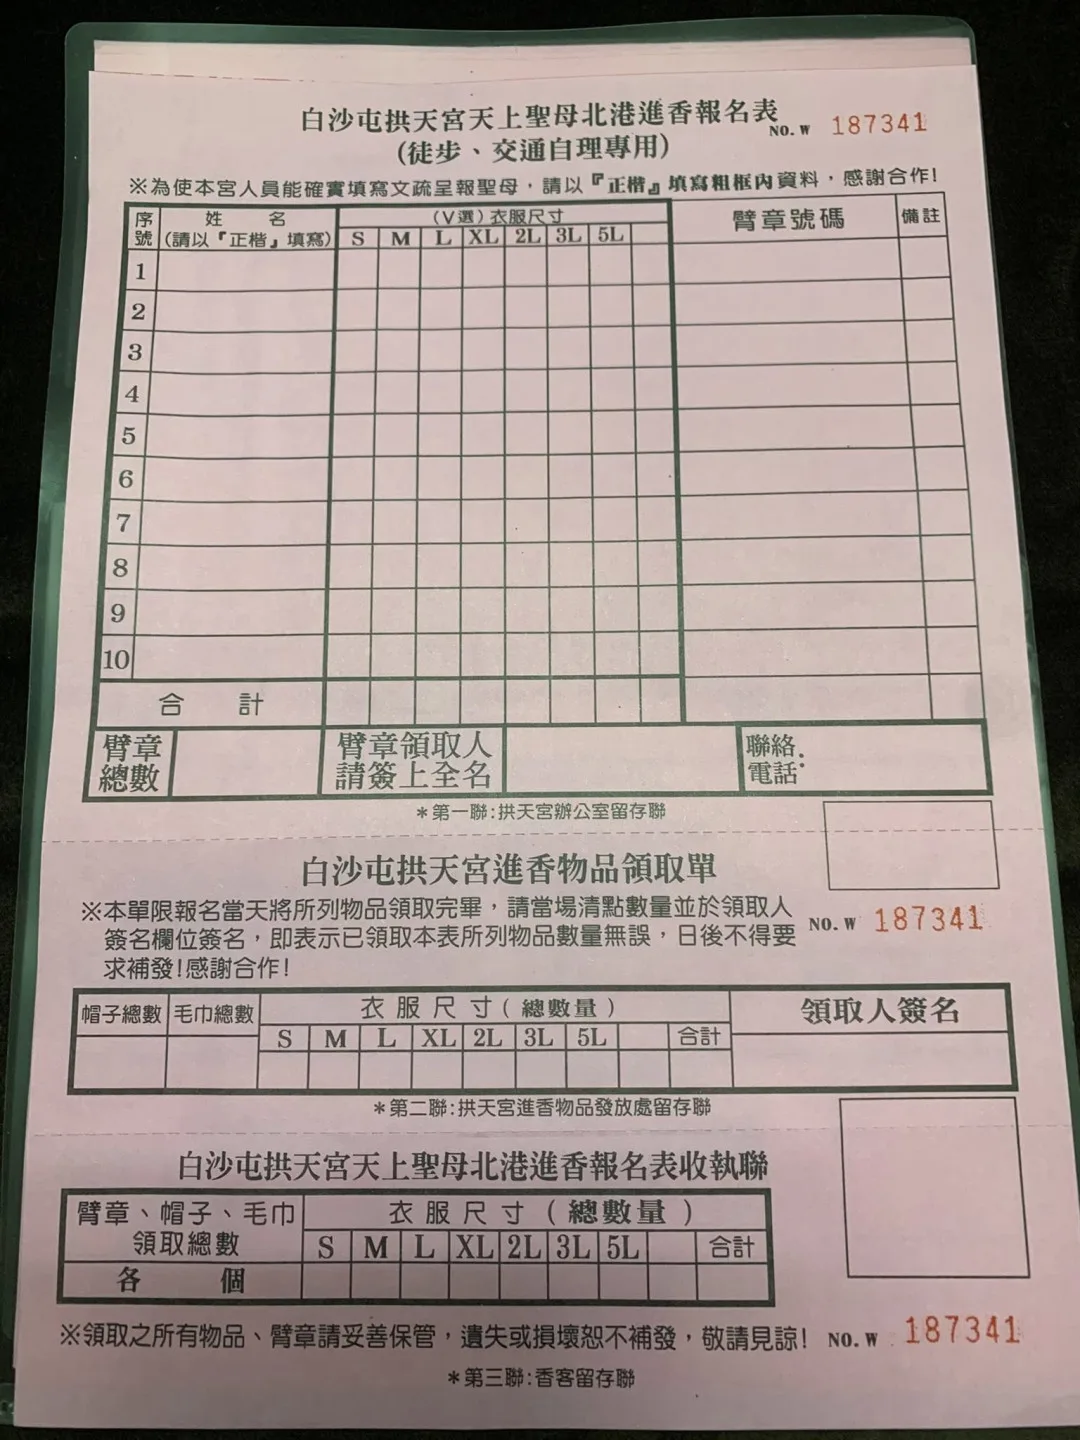 白沙屯拱天宮天上聖母北港進香報名表
NO. W 187341
(徒步、交通自理專用)
※為使本宮人員能確實填寫文疏呈報聖母，請以『正楷』填寫粗框內資料，感謝合作!
序號 姓名 (請以『正楷』填寫) (V選)衣服尺寸 臂章號碼 備註
S M L XL 2L 3L 5L
1
2
3
4
5
6
7
8
9
10
合計
臂章總數 臂章領取人請簽上全名 聯絡電話:
*第一聯:拱天宮辦公室留存聯
白沙屯拱天宮進香物品領取單
※本單限報名當天將所列物品領取完畢，請當場清點數量並於領取人
NO. W 187341
簽名欄位簽名，即表示已領取本表所列物品數量無誤，日後不得要
求補發!感謝合作!
帽子總數 毛巾總數 衣服尺寸(總數量) 領取人簽名
S M L XL 2L 3L 5L 合計
*第二聯:拱天宮進香物品發放處留存聯
白沙屯拱天宮天上聖母北港進香報名表收執聯
臂章、帽子、毛巾 衣服尺寸(總數量)
領取總數 S M L XL 2L 3L 5L 合計
各個
※領取之所有物品、臂章請妥善保管，遺失或損壞恕不補發，敬請見諒! NO. W 187341
*第三聯:香客留存聯